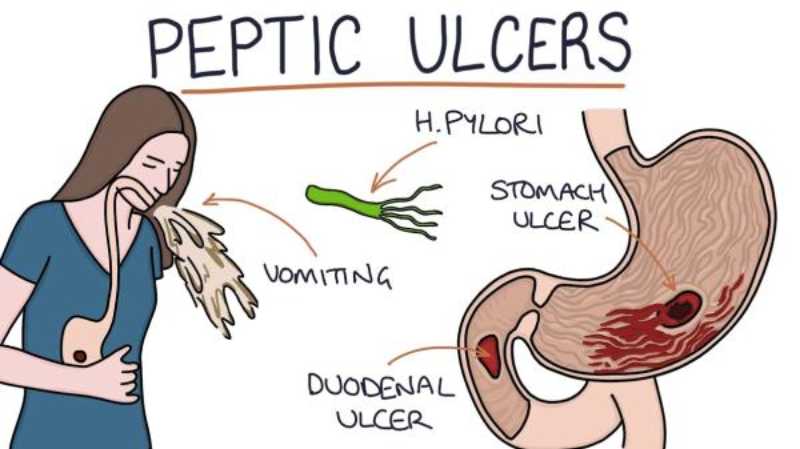 PEPTIC ULCERS
H.PYLORI
STOMACH
ULCER
VOMITING
DUODENAL
ULCER